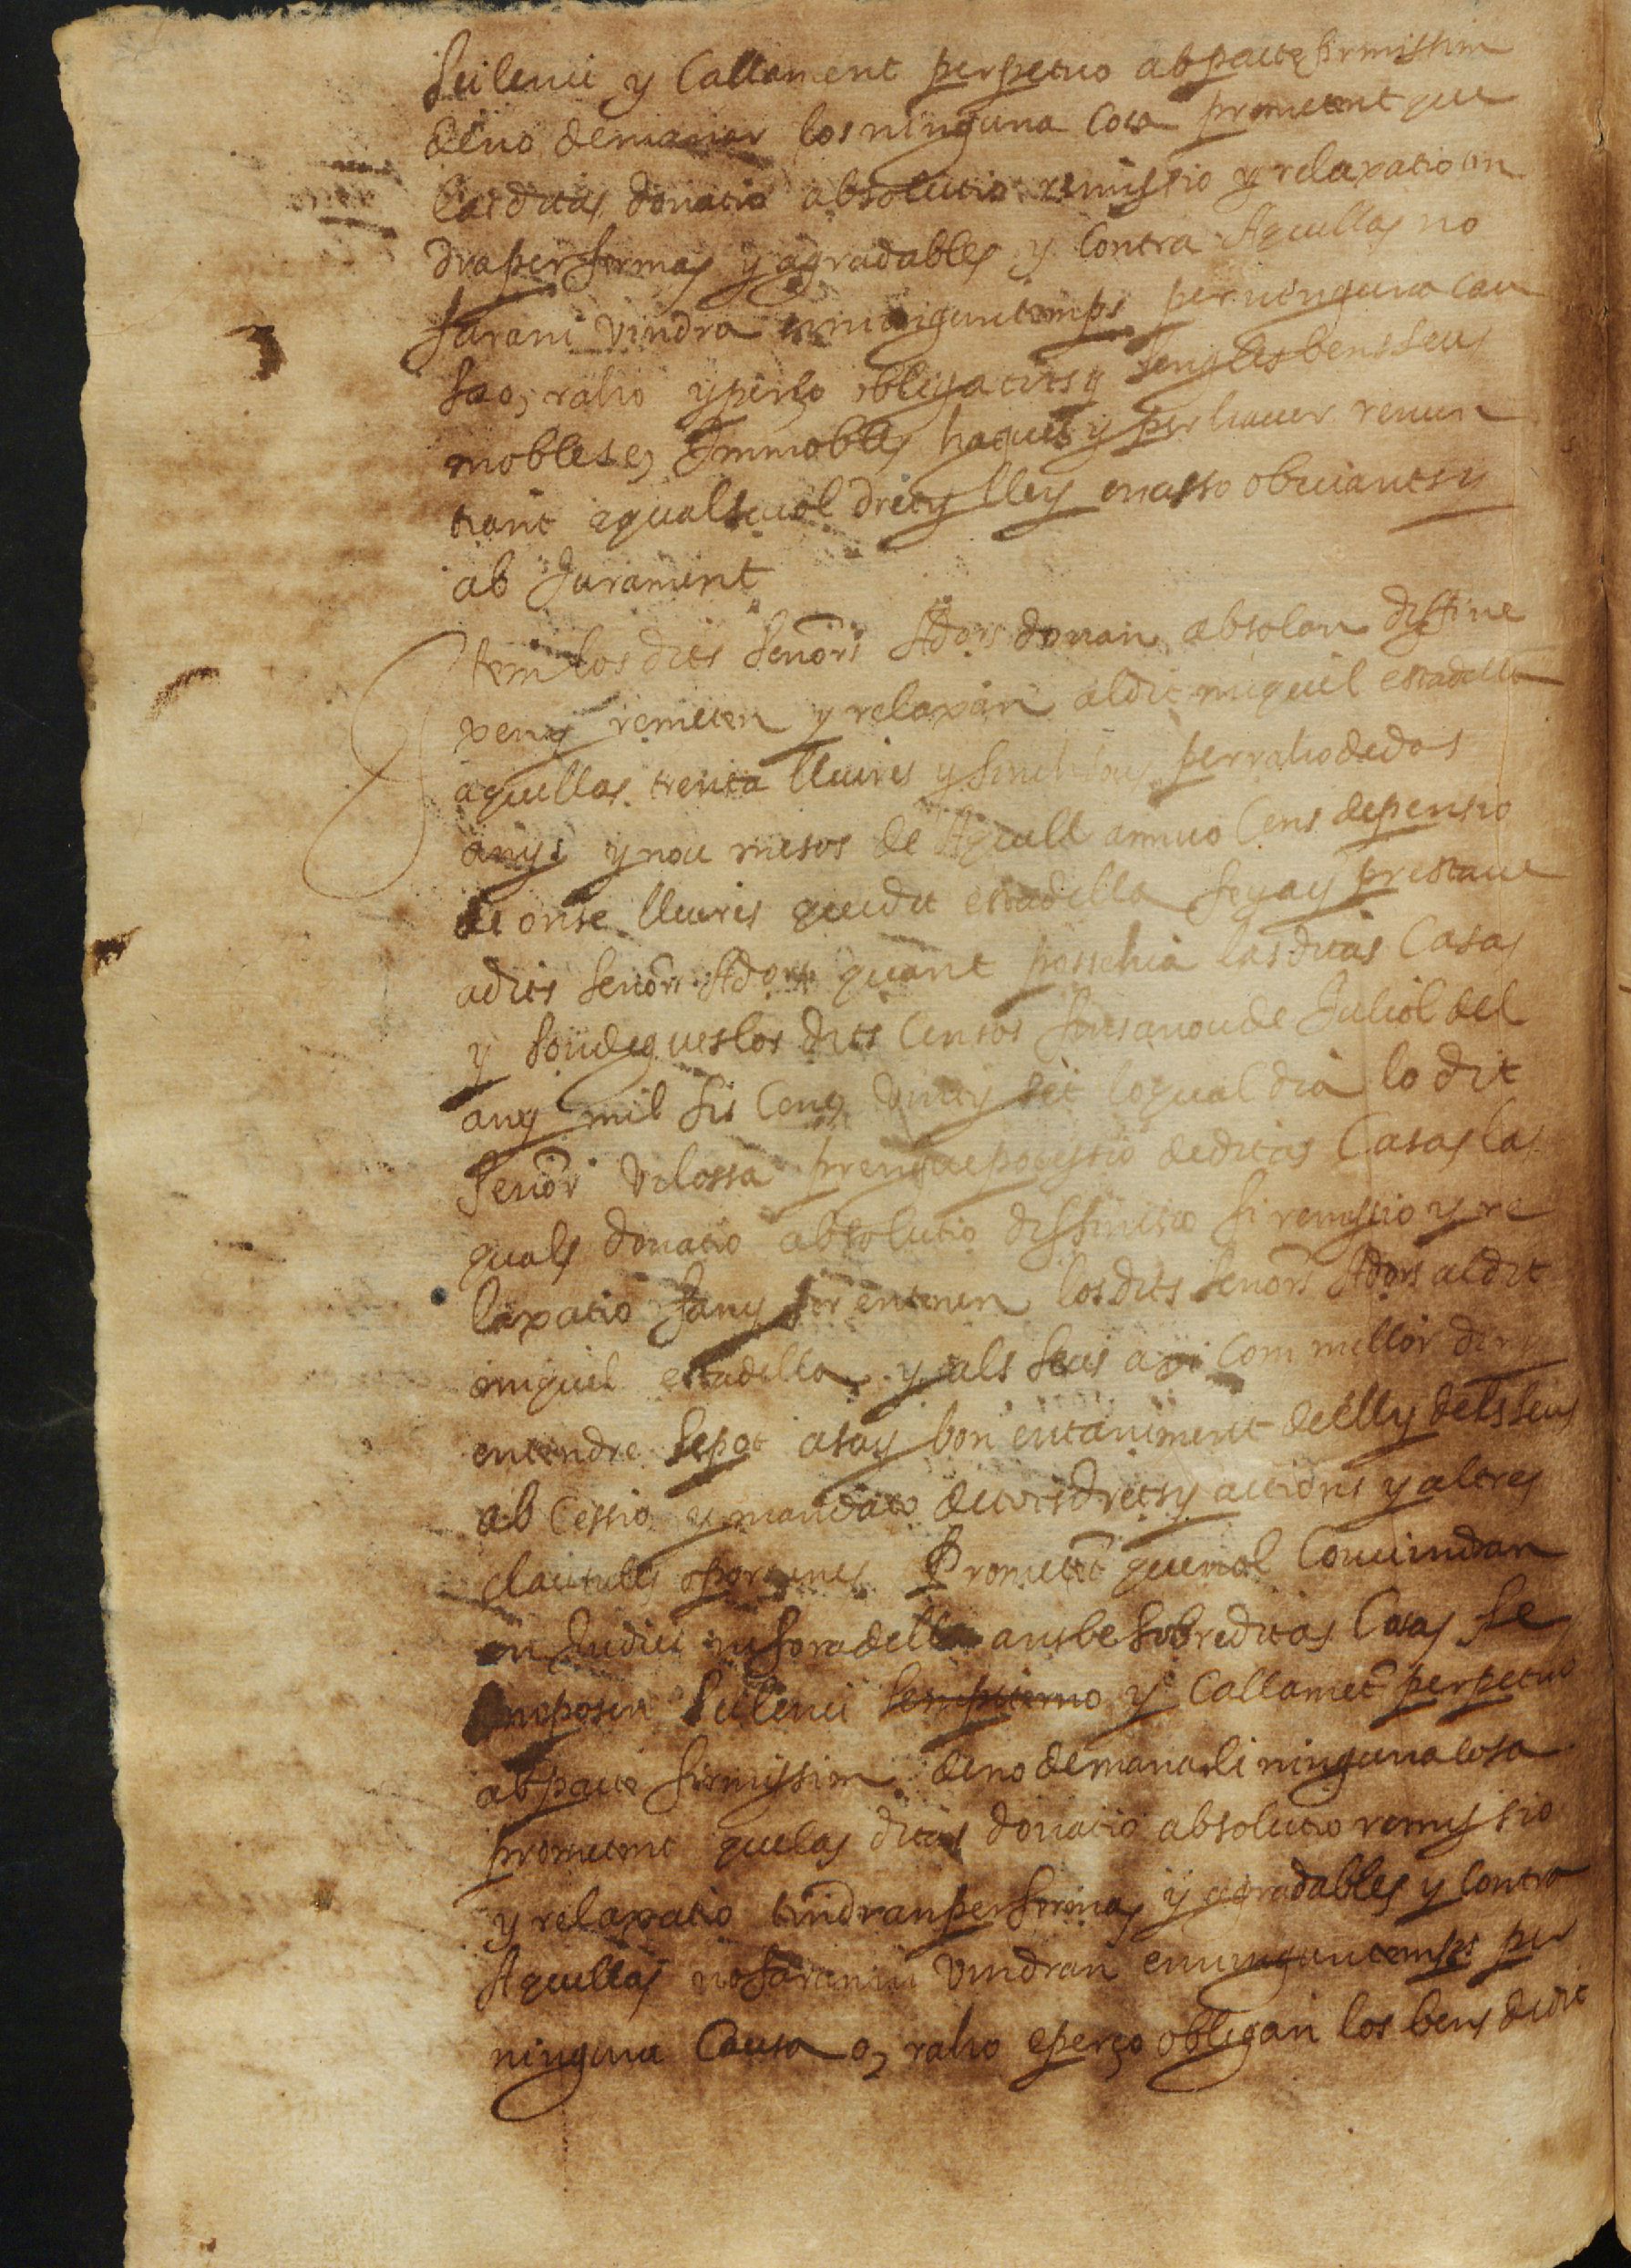 Scilenci y Callament perpetuo ab pacte firmissim
de no demanar los ninguna Cosa prometent que
las ditas donatio absolutio remissio y relaxatio tin
dra per fermas y agradables y Contra Aquellas no
fara ni vindra en ningun temps per ninguna cau
sa o, raho y perço obliga tots y sengles bens seus
mobles e, Immobles haguts y per hauer renun
tiant a qualseuol drets y lley en asso obuiants y
ab Jurament
Item los dits Señors Ad.ors donan absolan diffine
xen y remeten y relaxan al dit miquel estadella
aquellas trenta lliures y sinch sous per raho de dos
anys y nou mesos de Aquell annuo Cens de pensio
de onse lliures que dit estadella feya y prestaue
a dits Señors Ad.ors quant possehia las ditas Casas
y son degues los dits Censos fins a nou de Juliol del
any mil sis Cens vint y set lo qual dia lo dit
Señor Vilossa prengue pocessio de ditas Casas las
quals donatio absolutio diffinitio fi remissio y re
laxatio fan y fer entenen los dits Señors Ad.ors al dit
miquel estadella y als seus axi Com millor dir y
entendre se pot a sa y bon enteniment de ell y dels seus
ab Cessio y mandato de tots drets y actions y altres
clausules oportunes Prometēt que nol Conuindran
en Judici ni fora de ell ans be sobre ditas Cosas se
Imposen Scilenci sempiterno y Callamēt perpetuo
ab pacte firmissim de no demanarli ninguna cosa
prometent que las ditas donatio absolutio remissio
y relaxatio tindran per fermas y agradables y contra
Aquellas no faran ni vindran en ningun temps per
ninguna Causa o, raho e perço obligan los bens de dit